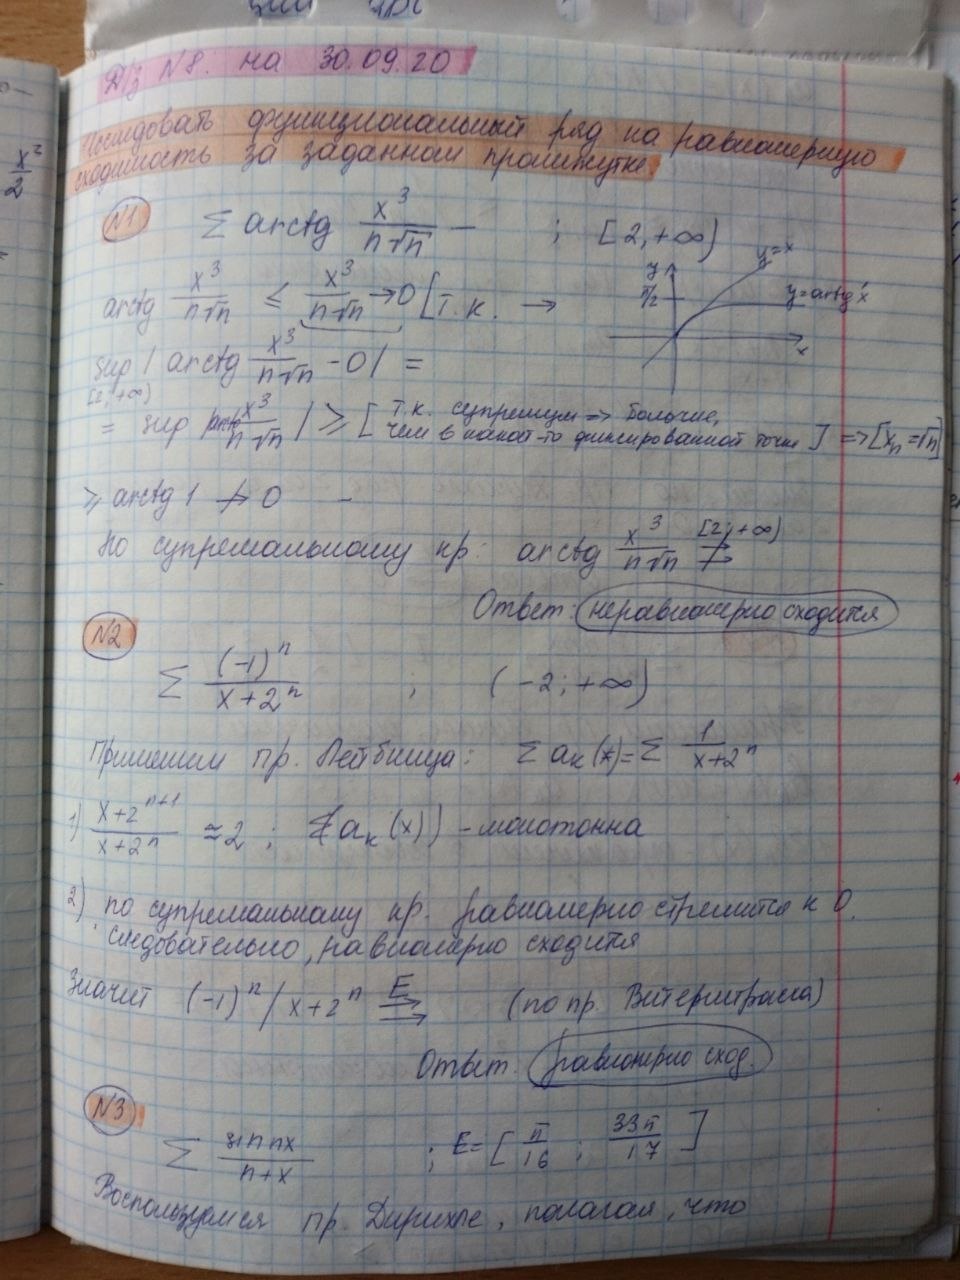 Д/з N8. на 30.09.20
Исследовать функциональный ряд на равномерную
сходимость за заданном промежутке.
N1 Σ arctg x³/(n√n) — ; [2, +∞)
arctg x³/(n√n) ≤ x³/(n√n) → 0 [т.к. →
y π/2 y=x y=arctg x x
sup | arctg x³/(n√n) - 0 | =
[2; +∞)
= sup |arctg x³/(n√n)| ≥ [ т.к. супремум => больше,
чем в какой-то фиксированной точке ] => [xₙ = √n]
≥ arctg 1 ↛ 0 -
По супремальному кр: arctg x³/(n√n) [2; +∞) ⇉
Ответ: неравномерно сходится
N2
Σ (-1)ⁿ/(x+2ⁿ) ; (-2; +∞)
Применим пр. Лейбница: Σ aₖ(x) = Σ 1/(x+2ⁿ)
1) (x+2ⁿ⁺¹)/(x+2ⁿ) ≈ 2 ; aₖ(x)) - монотонна
2) по супремальному кр. равномерно стремится к 0.
следовательно, равномерно сходится
Значит (-1)ⁿ / x+2ⁿ E ⇉ (по пр. Вейерштрасса)
Ответ: равномерно сход.
N3
Σ sin nx/(n+x) ; E = [π/16 ; 33π/17]
Воспользуемся пр. Дирихле, полагая, что
x²/2